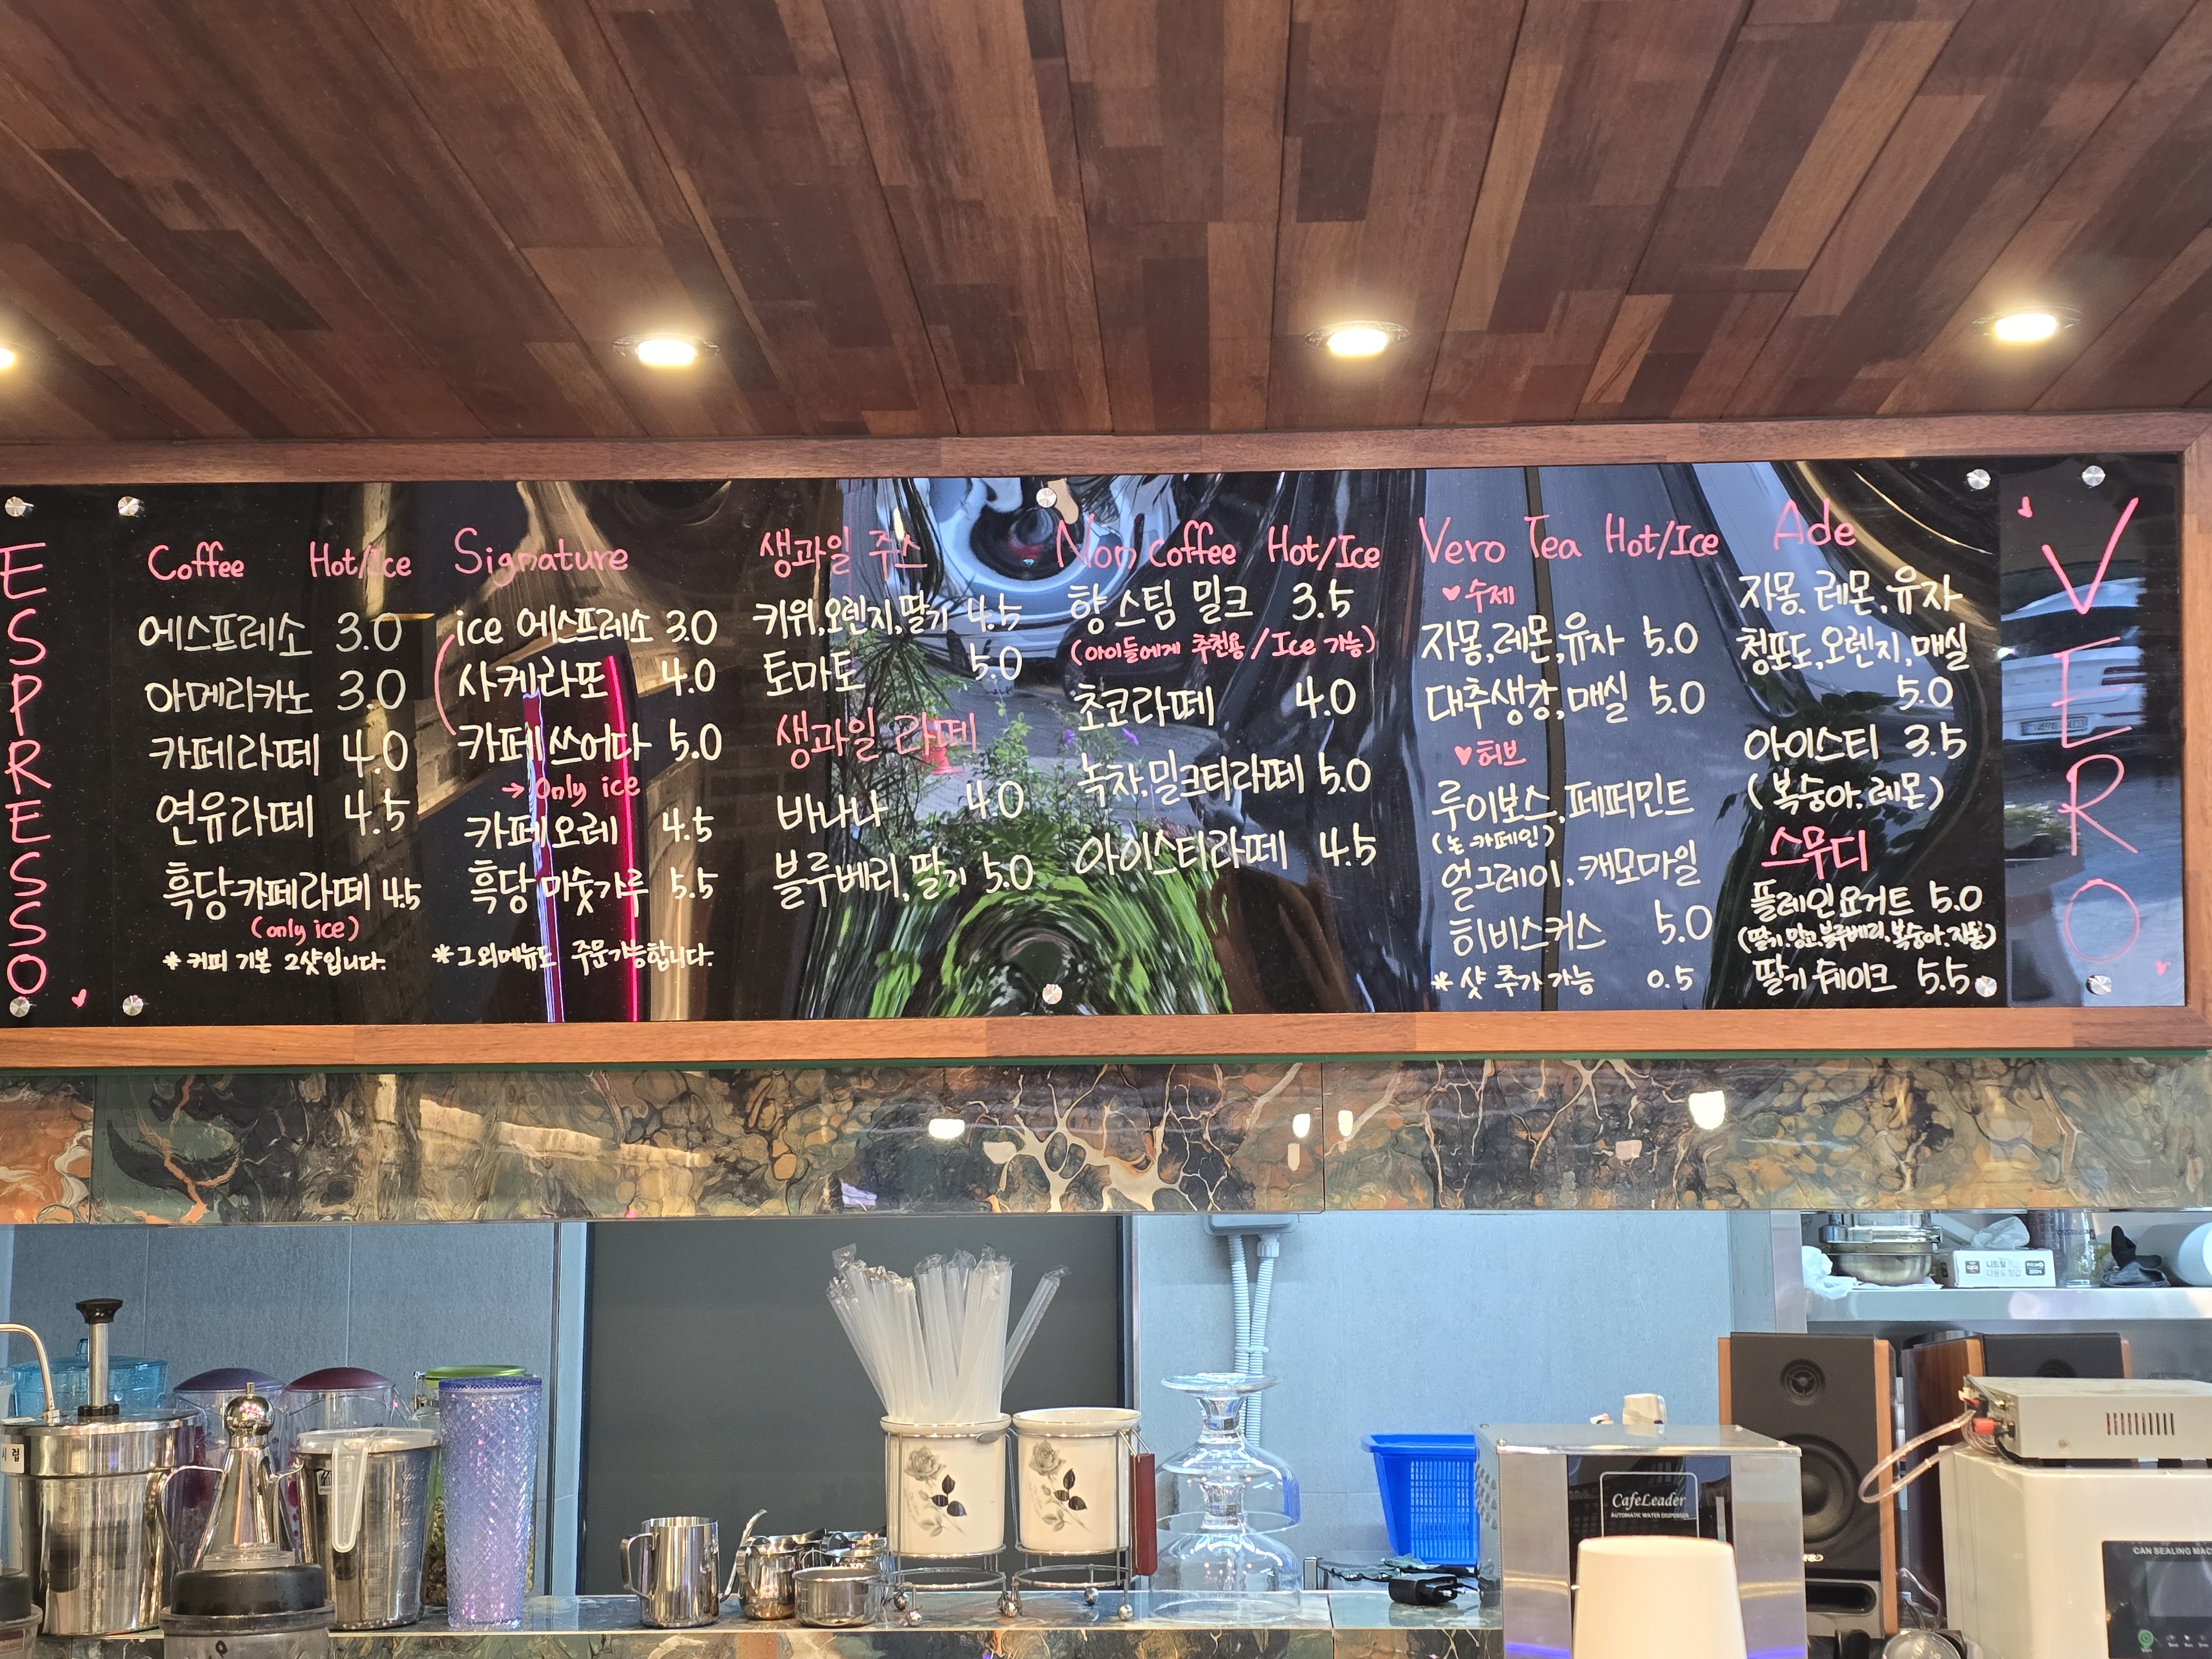 ESPRESSO
Coffee Hot/Ice
에스프레소 3.0
아메리카노 3.0
카페라떼 4.0
연유라떼 4.5
흑당카페라떼 4.5
(only ice)
* 커피 기본 2샷입니다.
Signature
ice 에스프레소 3.0
사케라또 4.0
카페 쓰어다 5.0
→ Only ice
카페오레 4.5
흑당 미숫가루 5.5
* 그외메뉴도 주문가능합니다.
생과일 주스
키위,오렌지,딸기 4.5
토마토 5.0
생과일 라떼
바나나 4.0
블루베리,딸기 5.0
Non Coffee Hot/Ice
향 스팀 밀크 3.5
(아이들에게 추천용 / Ice 가능)
초코라떼 4.0
녹차,밀크티라떼 5.0
아이스티라떼 4.5
Vero Tea Hot/Ice
♥수제
자몽,레몬,유자 5.0
대추생강,매실 5.0
♥허브
루이보스,페퍼민트
(논 카페인)
얼그레이,캐모마일
히비스커스 5.0
* 샷 추가 가능 0.5
Ade
자몽,레몬,유자
청포도,오렌지,매실
5.0
아이스티 3.5
(복숭아,레몬)
스무디
플레인요거트 5.0
(딸기,망고,블루베리,복숭아,자몽)
딸기 쉐이크 5.5
VERO
시럽
CafeLeader
AUTOMATIC WATER DISPENSER
CAN SEALING MAC